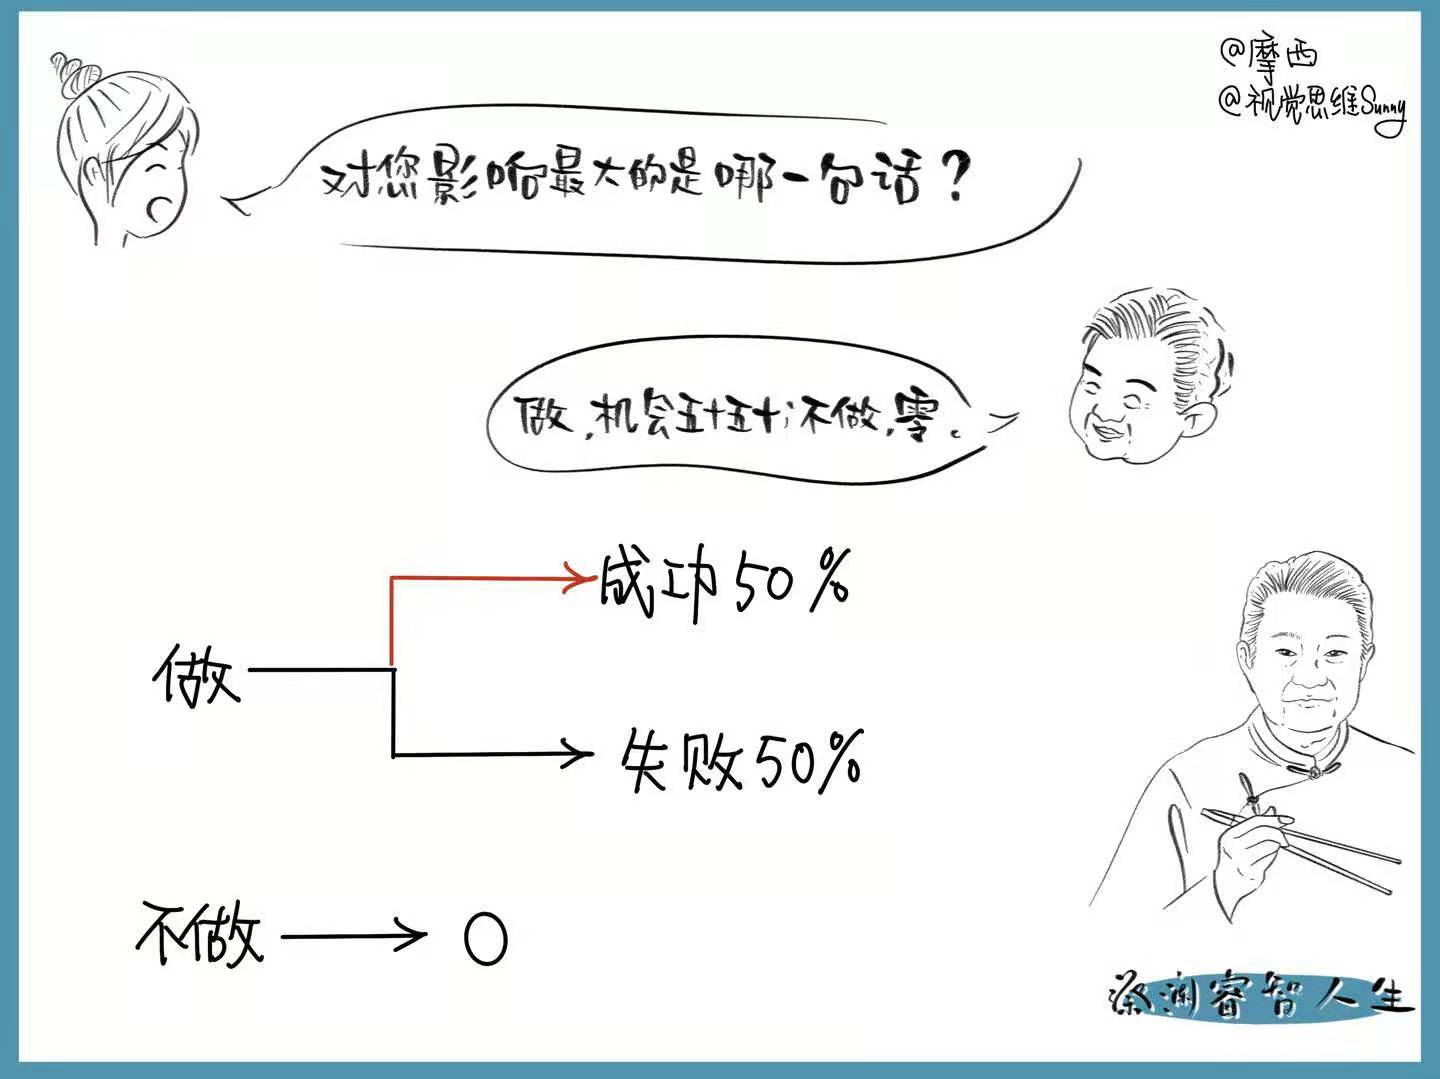 @摩西
@视觉思维Sunny
对您影响最大的是哪一句话？
做，机会五十五十；不做，零。
成功50%
做
失败50%
不做 0
蔡澜睿智人生